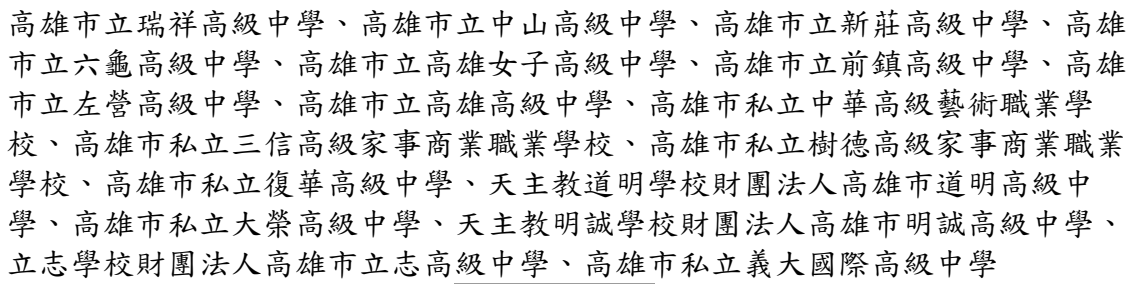 高雄市立瑞祥高級中學、高雄市立中山高級中學、高雄市立新莊高級中學、高雄
市立六龜高級中學、高雄市立高雄女子高級中學、高雄市立前鎮高級中學、高雄
市立左營高級中學、高雄市立高雄高級中學、高雄市私立中華高級藝術職業學
校、高雄市私立三信高級家事商業職業學校、高雄市私立樹德高級家事商業職業
學校、高雄市私立復華高級中學、天主教道明學校財團法人高雄市道明高級中
學、高雄市私立大榮高級中學、天主教明誠學校財團法人高雄市明誠高級中學、
立志學校財團法人高雄市立志高級中學、高雄市私立義大國際高級中學